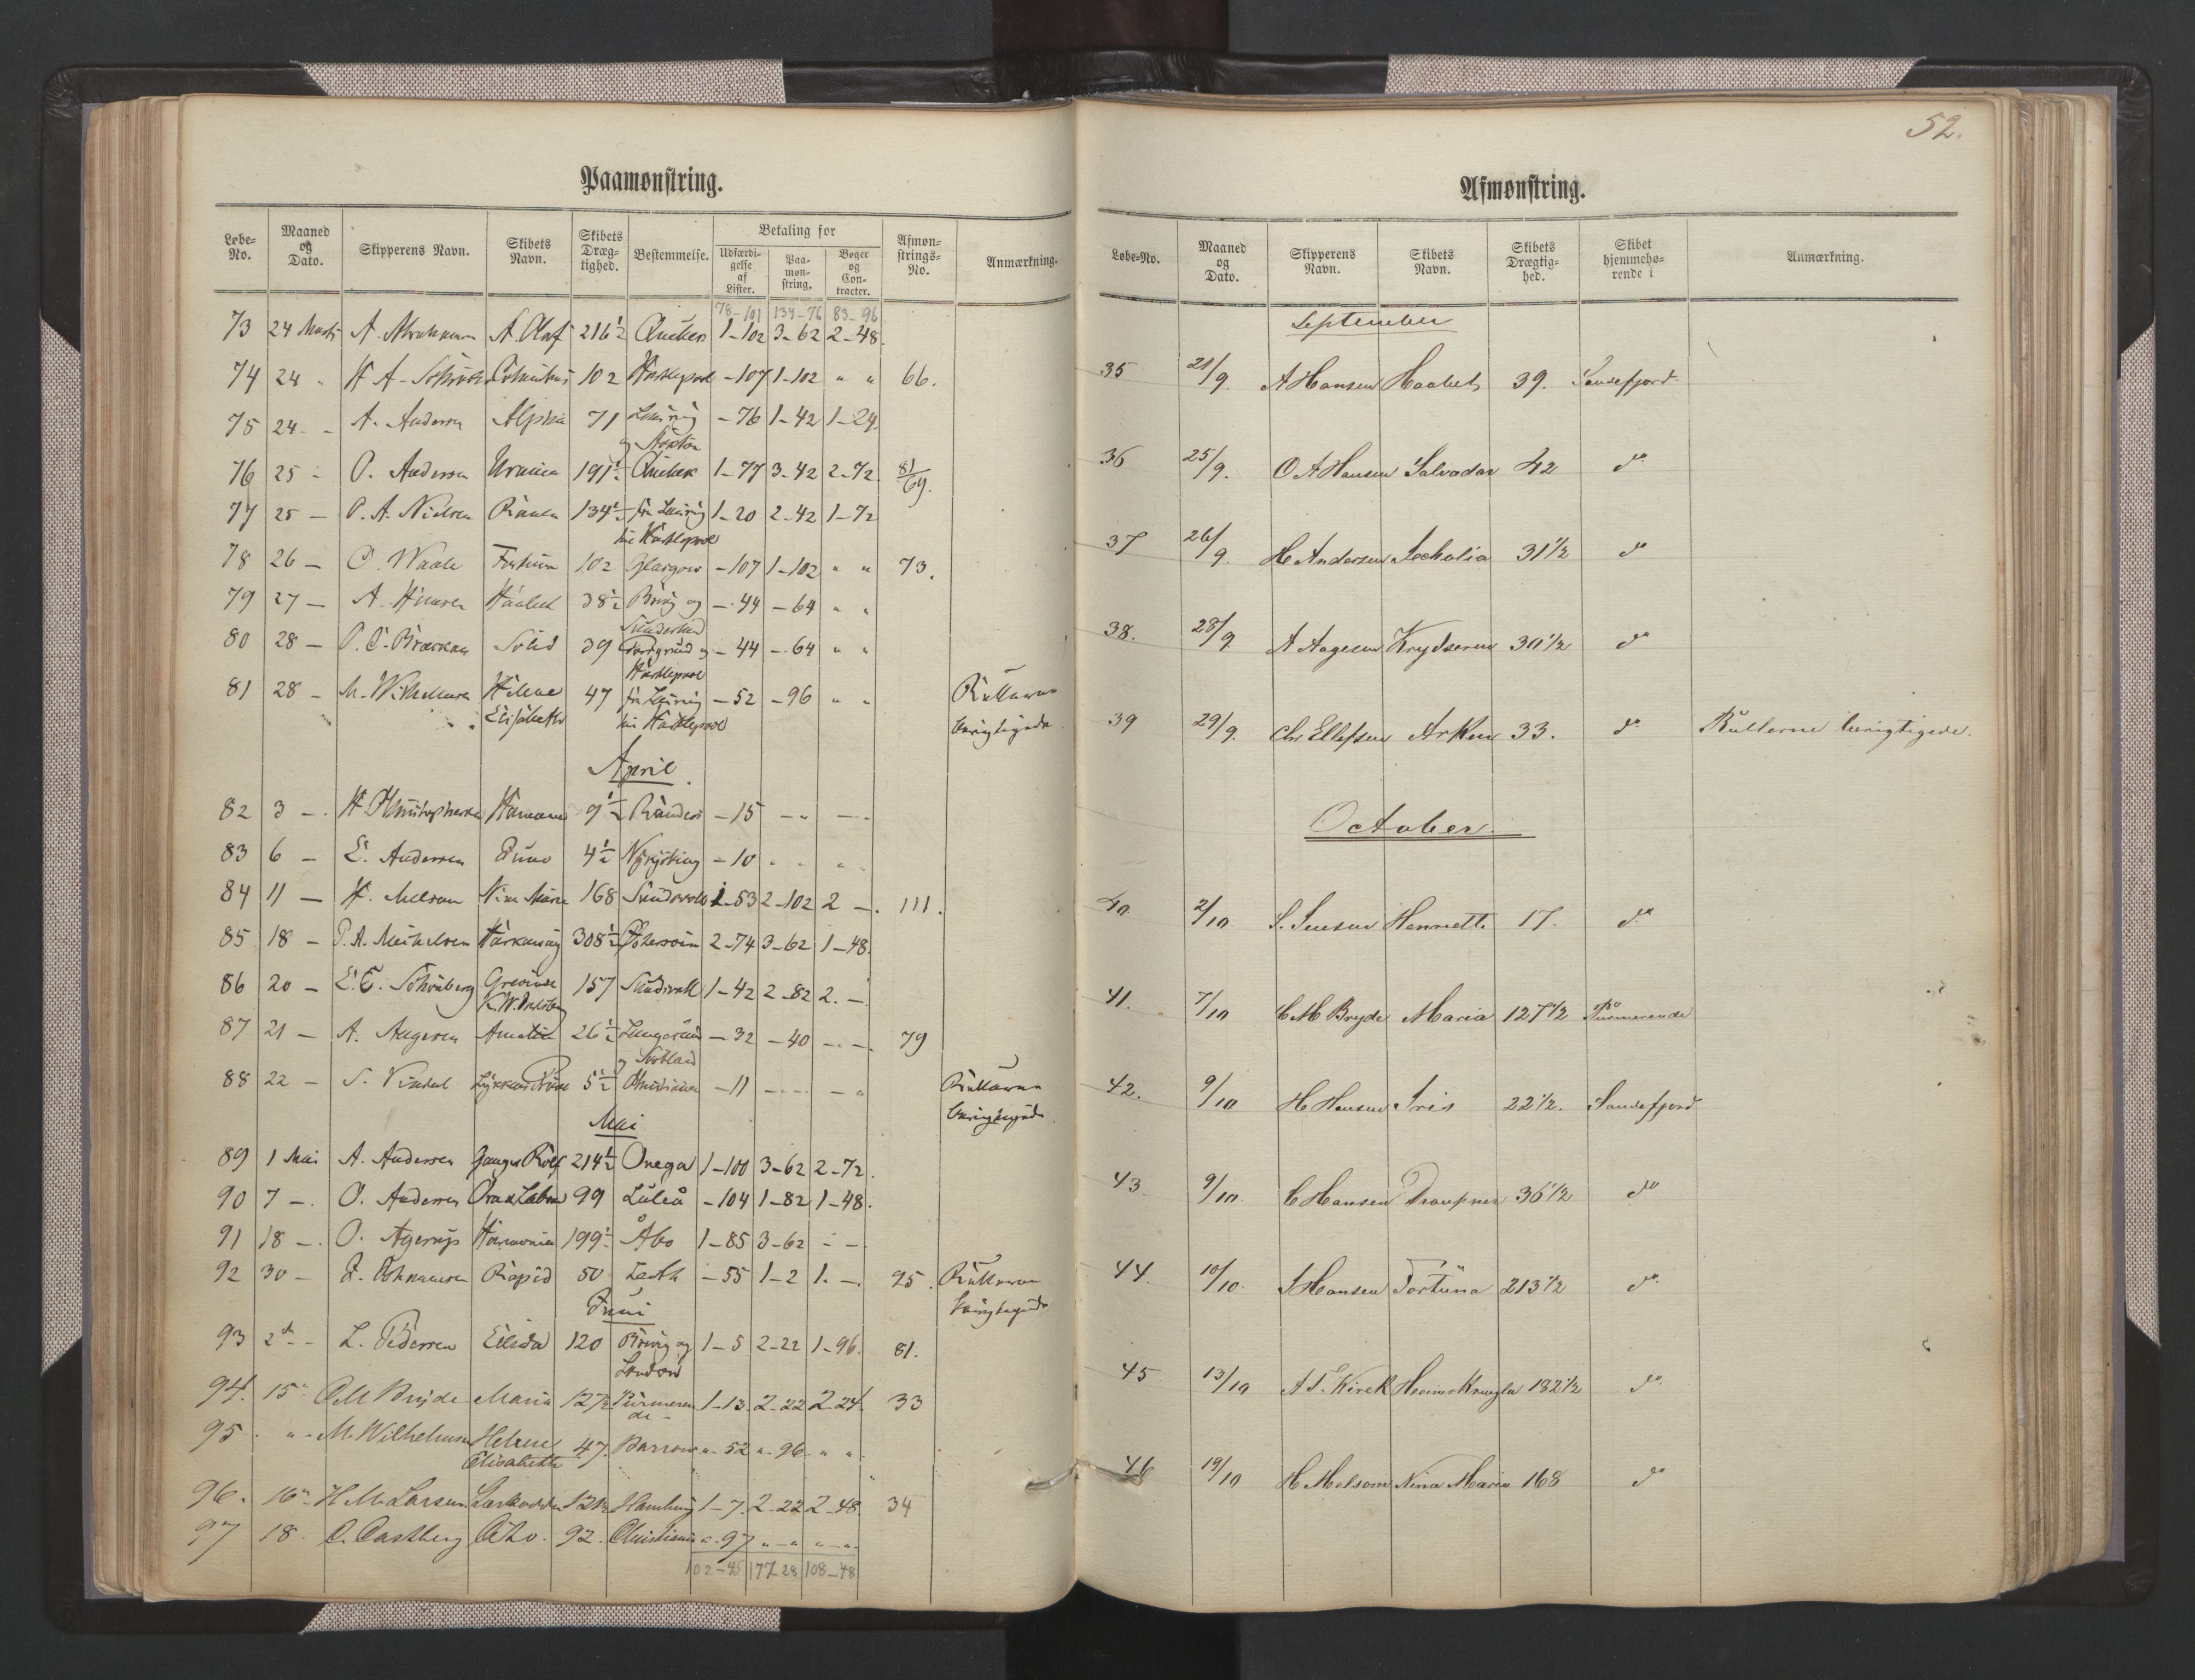 52.
Paamønstring.
Løbe-No. Maaned og Dato. Skipperens Navn. Skibets Navn. Skibets Drægtighed. Bestemmelse. Betaling for Udfærdigelse af Lister. Paamønstring. Bøger og Contracter. Afmønstrings-No. Anmærkning.
78-101 134-76 83-96
73 24 Marts A. A. Olaf 216½ 1-102 3-62 2-48
74 24 " H A. Columbus 102 Hartlepool -107 1-102 " " 66.
75 24 - A. Andersen 71 -76 1-42 1-24
og
76 25 - O. Andersen Urania 191½ Quebek 1-77 3-42 2-72 81/69.
77 25 - P. A. Nielsen 134½ fra 1-20 2-42 1-72
til Hartlepool
78 26 - C. Waale 102 Glasgow -107 1-102 " " 73.
79 27 - A. Hansen Haabet 38½ og -44 -64 " "
Sunderland
80 28 - Solid 39 og -44 -64 " "
Hartlepool
81 28 - M. Wilhelmsen Helene 47 fra -52 -96 " " Rullerne
Elisabeth til Hartlepool berigtigede.
April
82 3 - H. Christophersen 9½ Randers -15 - -
83 6 - E. Andersen Juno 4½ Nykjöbing -10 " "
84 11 - H. Melsom Nina Maria 168 Sundsvall 1-53 2-102 2 - 111.
85 18 - P. A. Mikkelsen 308½ 2-74 3-62 1-48
86 20 - 157 Sundsvall 1-42 2-82 2 -
87 21 - A. Aagesen 26½ -32 -40 - - 79
og Skotland
88 22 - 5½ Christiania -11 - - Rullerne
berigtigede
Mai
89 1 Mai A. Andersen Ganger Rolf 214½ Onega 1-100 3-62 2-72
90 7 - O. Andersen Ora et Labora 99 Luleå -104 1-82 1-48
91 18 - O. Harmonia 199½ Åbo 1-85 3-62 - -
92 30 - Rapid 50 Leith -55 1-2 1 - 95. Rullerne
berigtigede
Juni
93 2 - L. Pedersen 120 og 1-5 2-22 1-96 81.
London
94. 15 C M Bryde Maria 127½ Purmeren 1-13 2-22 2-24 33
de
95 " - M. Wilhelmsen Helene 47. Barrow "-52 "-96 " "
Elisabeth
96. 16 H M Larsen 121½ Hamburg 1-7. 2-22 2-48 34
97 18 C. Castberg 92. Christiania "-97 "-" "-"
102-45 177-28 108-48
Afmønstring.
Løbe-No. Maaned og Dato. Skipperens Navn. Skibets Navn. Skibets Drægtighed. Skibet hjemmehørende i Anmærkning.
September
35 21/9. A Hansen Haabet 39. Sandefjord
36 25/9. O A Hansen Salvador 42 do
37 26/9. H Andersen 31½ do
38. 28/9. A Aagesen Krydseren 30½ do
39 29/9. Chr Ellefsen Arken 33. do Rullerne berigtigede.
October
40 2/10 S. Jensen Henriette 17. do
41. 7/10 C M Bryde Maria 127½ Purmerende
42. 9/10 H Hansen Iris 22½. Sandefjord
43. 9/10 C Hansen Draupner 36½ do
44. 10/10. S Hansen Fortuna 213½ do
45 13/10 A S. Kirck Heimskringla 182½ do
46 19/10 H Melsom Nina Maria 168 do